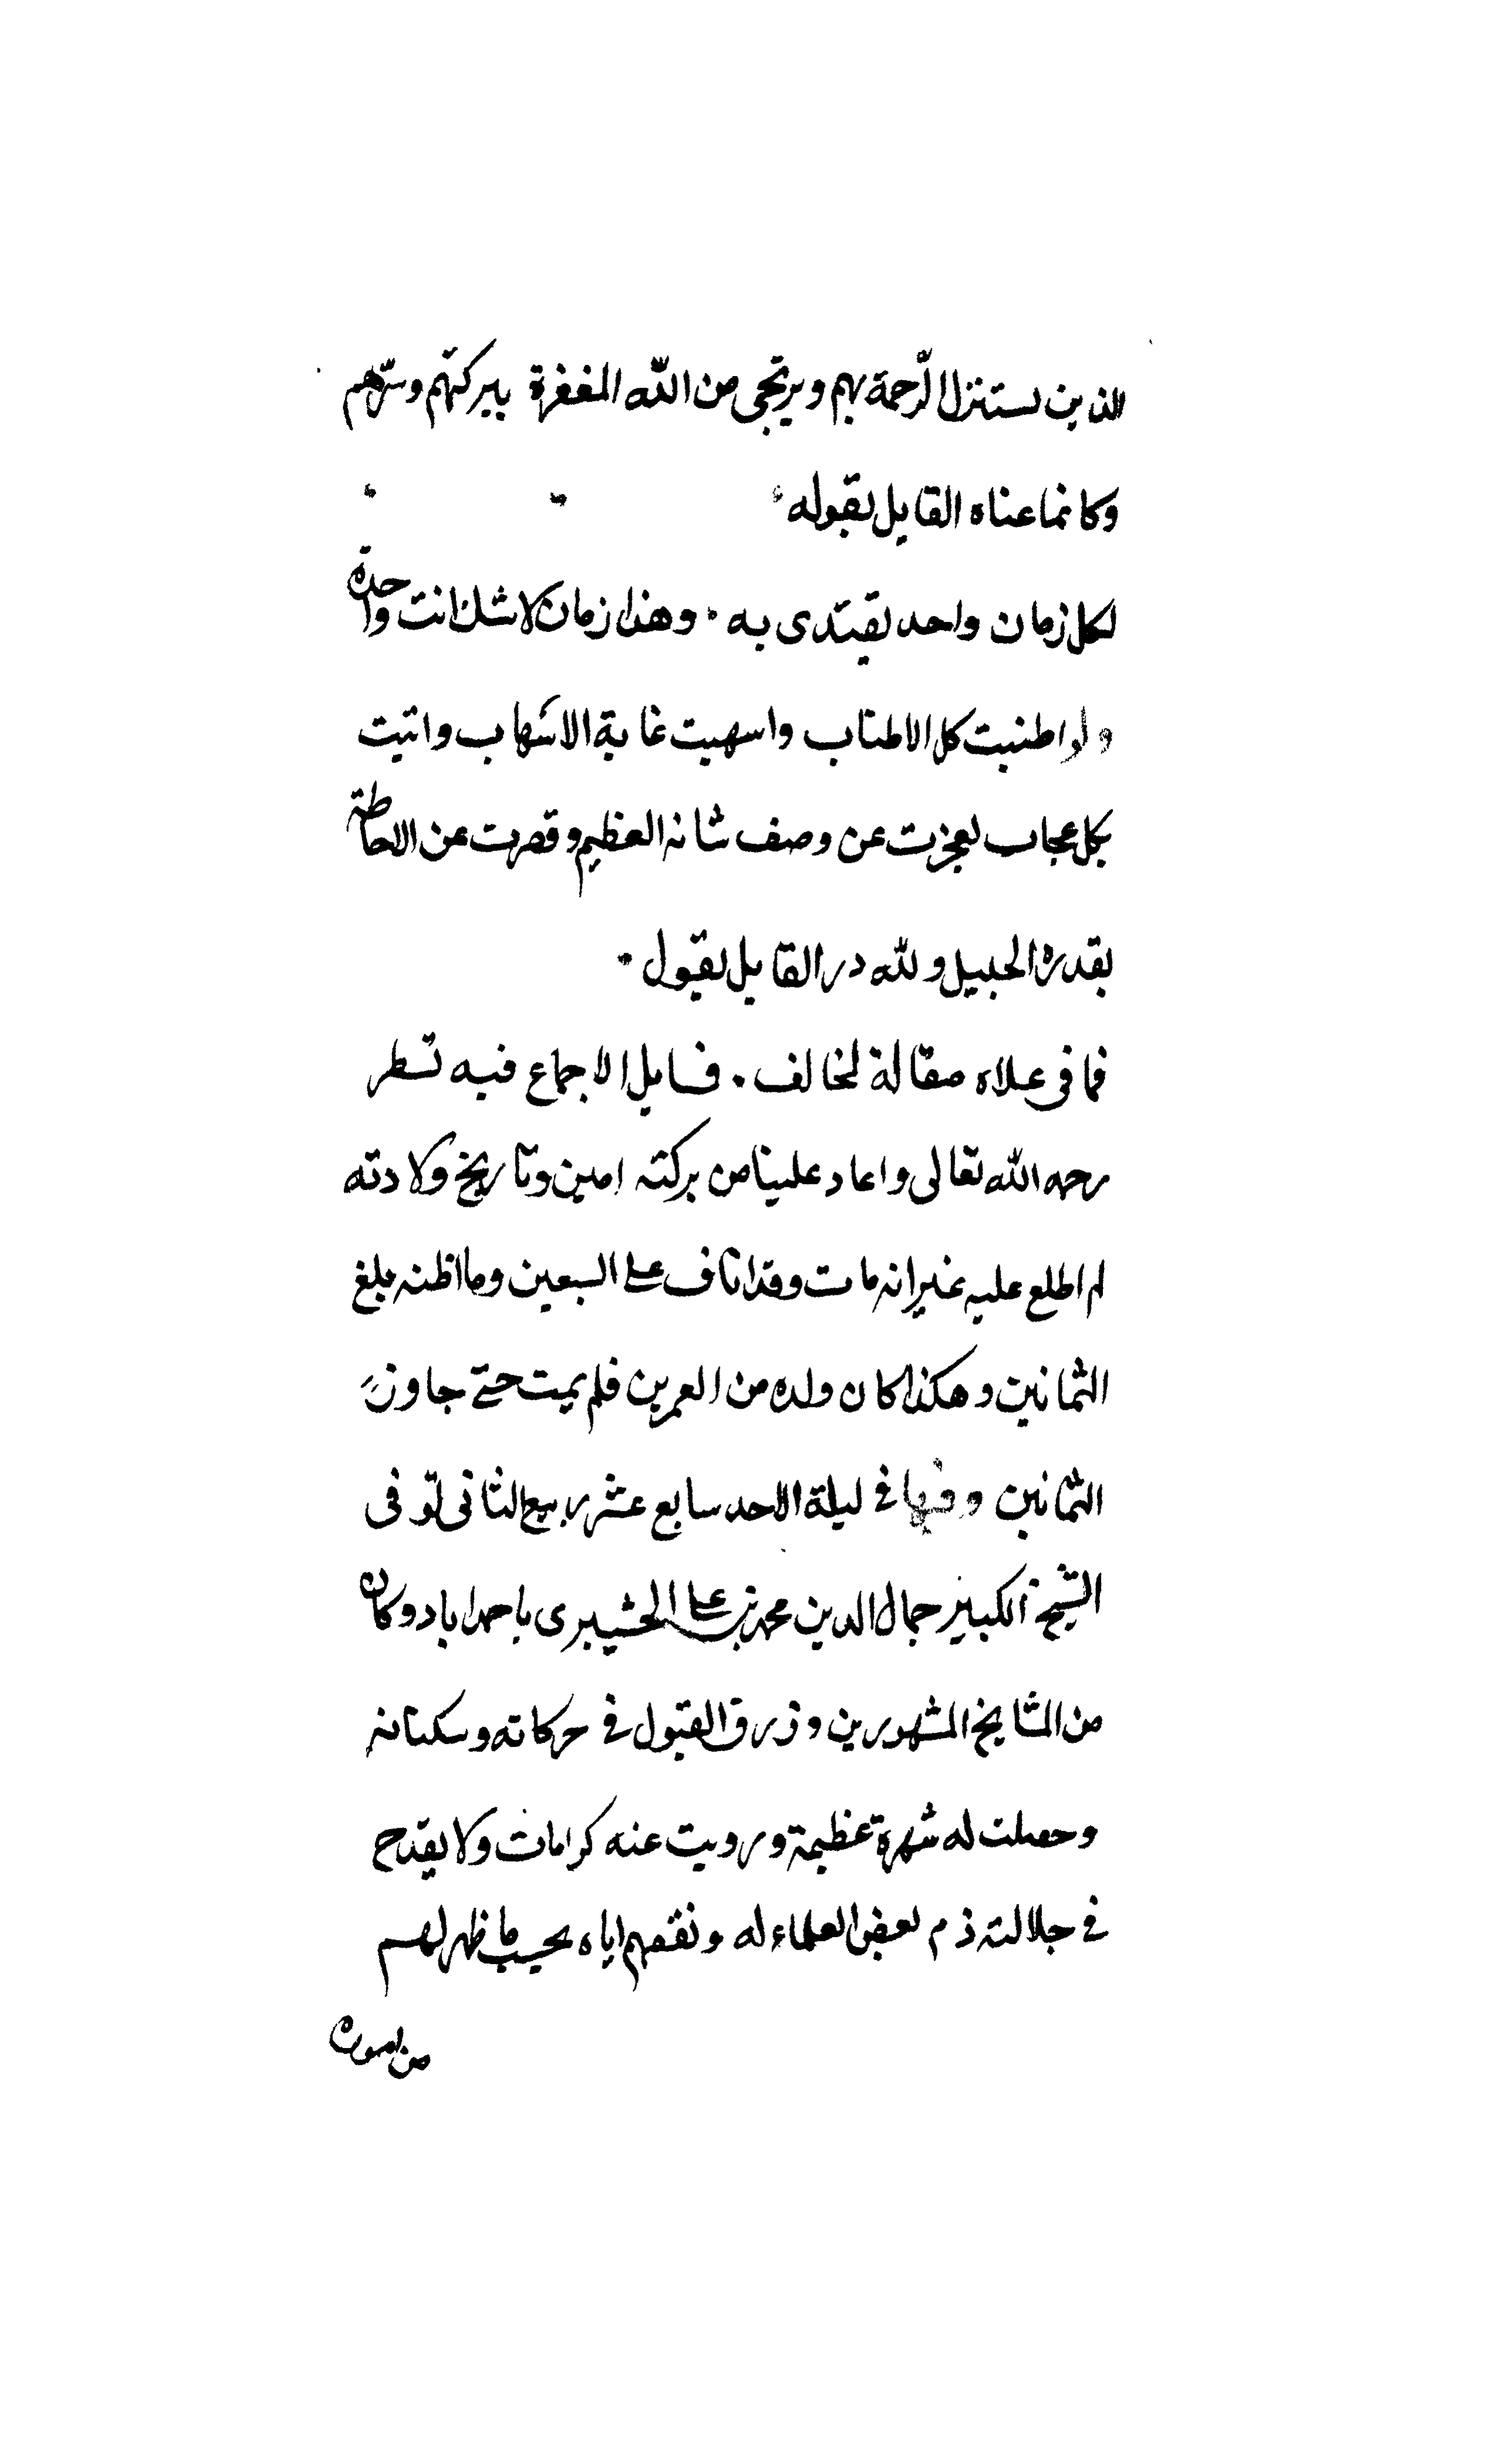 الذين يستنزل الرّحمة بهم ويرتجى من الله المغفرة ببركتهم وسرّهم
وكانما عناه القايل بقوله
لكل زمان واحد يقتدى به ۰ وهذا زمان لا شك انت واحده
ولو اطنبت كل الاطناب واسهبت غاية الاسهاب واتيت
بكل عجاب لعجزت عن وصف شانه العظيم وقصرت عن الاحاطة
بقدره الجليل ولله در القايل يقول ۰
فما فى علاه مقالة لمخالف ۰ فسايل الاجماع فيه تسطر
رحمه الله تعالى واعاد علينا من بركته امين وتاريخ ولادته
لم اطلع عليه غير انه مات وقد اناف على السبعين وما اظنه بلغ
الثمانين وهكذا كان ولده من العمرين فلم يمت حتى جاوز
الثمانين وفيها فى ليلة الاحد سابع عشر ربيع الثانى توفى
الشيخ الكبير جمال الدين محمد بن على الحشيبرى باحمداباد وكان
من المشايخ المشهورين وزرق القبول فى حركاته وسكناته
وحصلت له شهرة عظيمة ورويت عنه كرامات ولا يقدح
فى جلالته ذم بعض العلماء له ونقصهم اياه بحسب ما ظهر لهم
من اموره